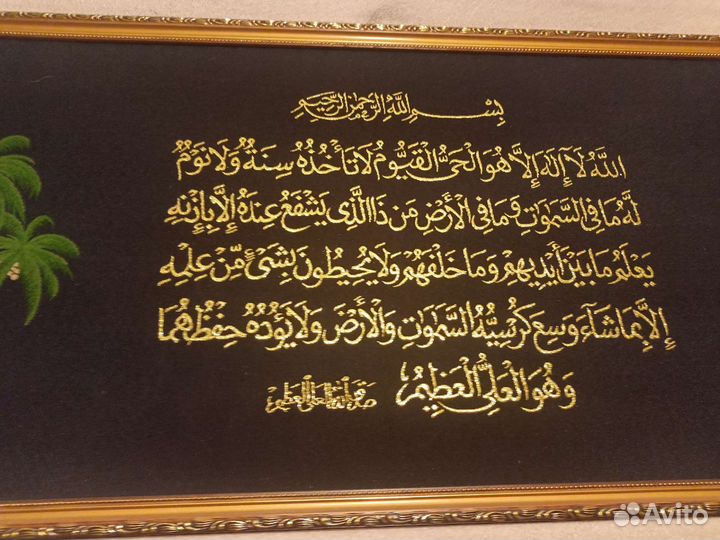 بِسْمِ اللهِ الرَّحْمٰنِ الرَّحِيْمِ
اَللّٰهُ لَآ اِلٰهَ اِلَّا هُوَ الْحَىُّ الْقَيُّوْمُ لَا تَأْخُذُهٗ سِنَةٌ وَّلَا نَوْمٌ
لَهٗ مَا فِى السَّمٰوٰتِ وَمَا فِى الْاَرْضِ مَنْ ذَا الَّذِى يَشْفَعُ عِنْدَهٗ اِلَّا بِاِزْنِهٖ
يَعْلَمُ مَا بَيْنَ اَيْدِيْهِمْ وَمَا خَلْفَهُمْ وَلَا يُحِيْطُوْنَ بِشَىْءٍ مِّنْ عِلْمِهٖ
اِلَّا بِمَا شَآءَ وَسِعَ كُرْسِيُّهُ السَّمٰوٰتِ وَالْاَرْضَ وَلَا يَؤُدُهٗ حِفْظُهُمَا
وَهُوَ الْعَلِىُّ الْعَظِيْمُ صدق الله العلى العظيم
Avito